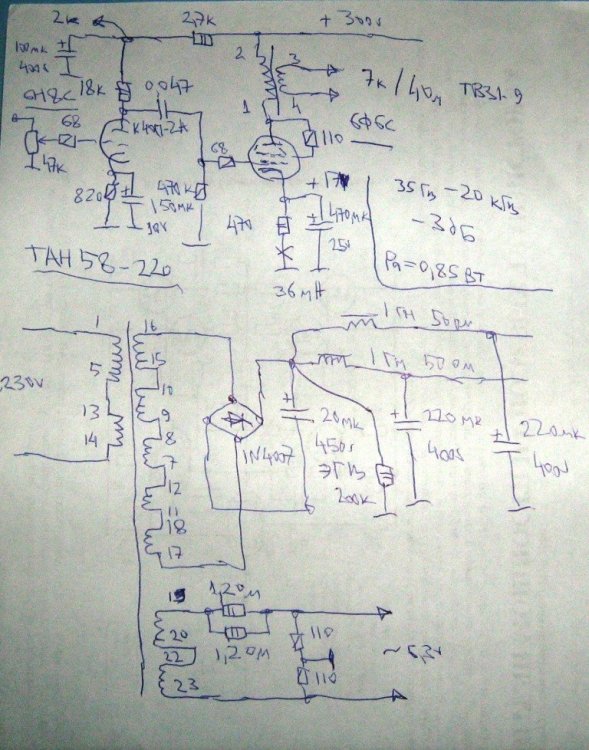 2к 2,7к +300v
100мк
400v
6Н8С 18к 0,047
К40П-2А
68
47к
820
150мк
10v
470к
68
2 3
1 4
7к/4Ом ТВ3 1-9
110 6Ф6С
+17v
470 470мк
25v
36мА
35Гц - 20кГц
- 3дБ
Pa=0,85Вт
ТАН 58-220
230v
1
5
13
14
16
15
10
9
8
7
12
11
18
17
1N4007
20мк
450v
ЭГЦ
200к
1Гн 50ом
1Гн 50ом
220мк
400v
220мк
400v
1,2Ом
1,2Ом
20
22
23
110
110
~6,3v